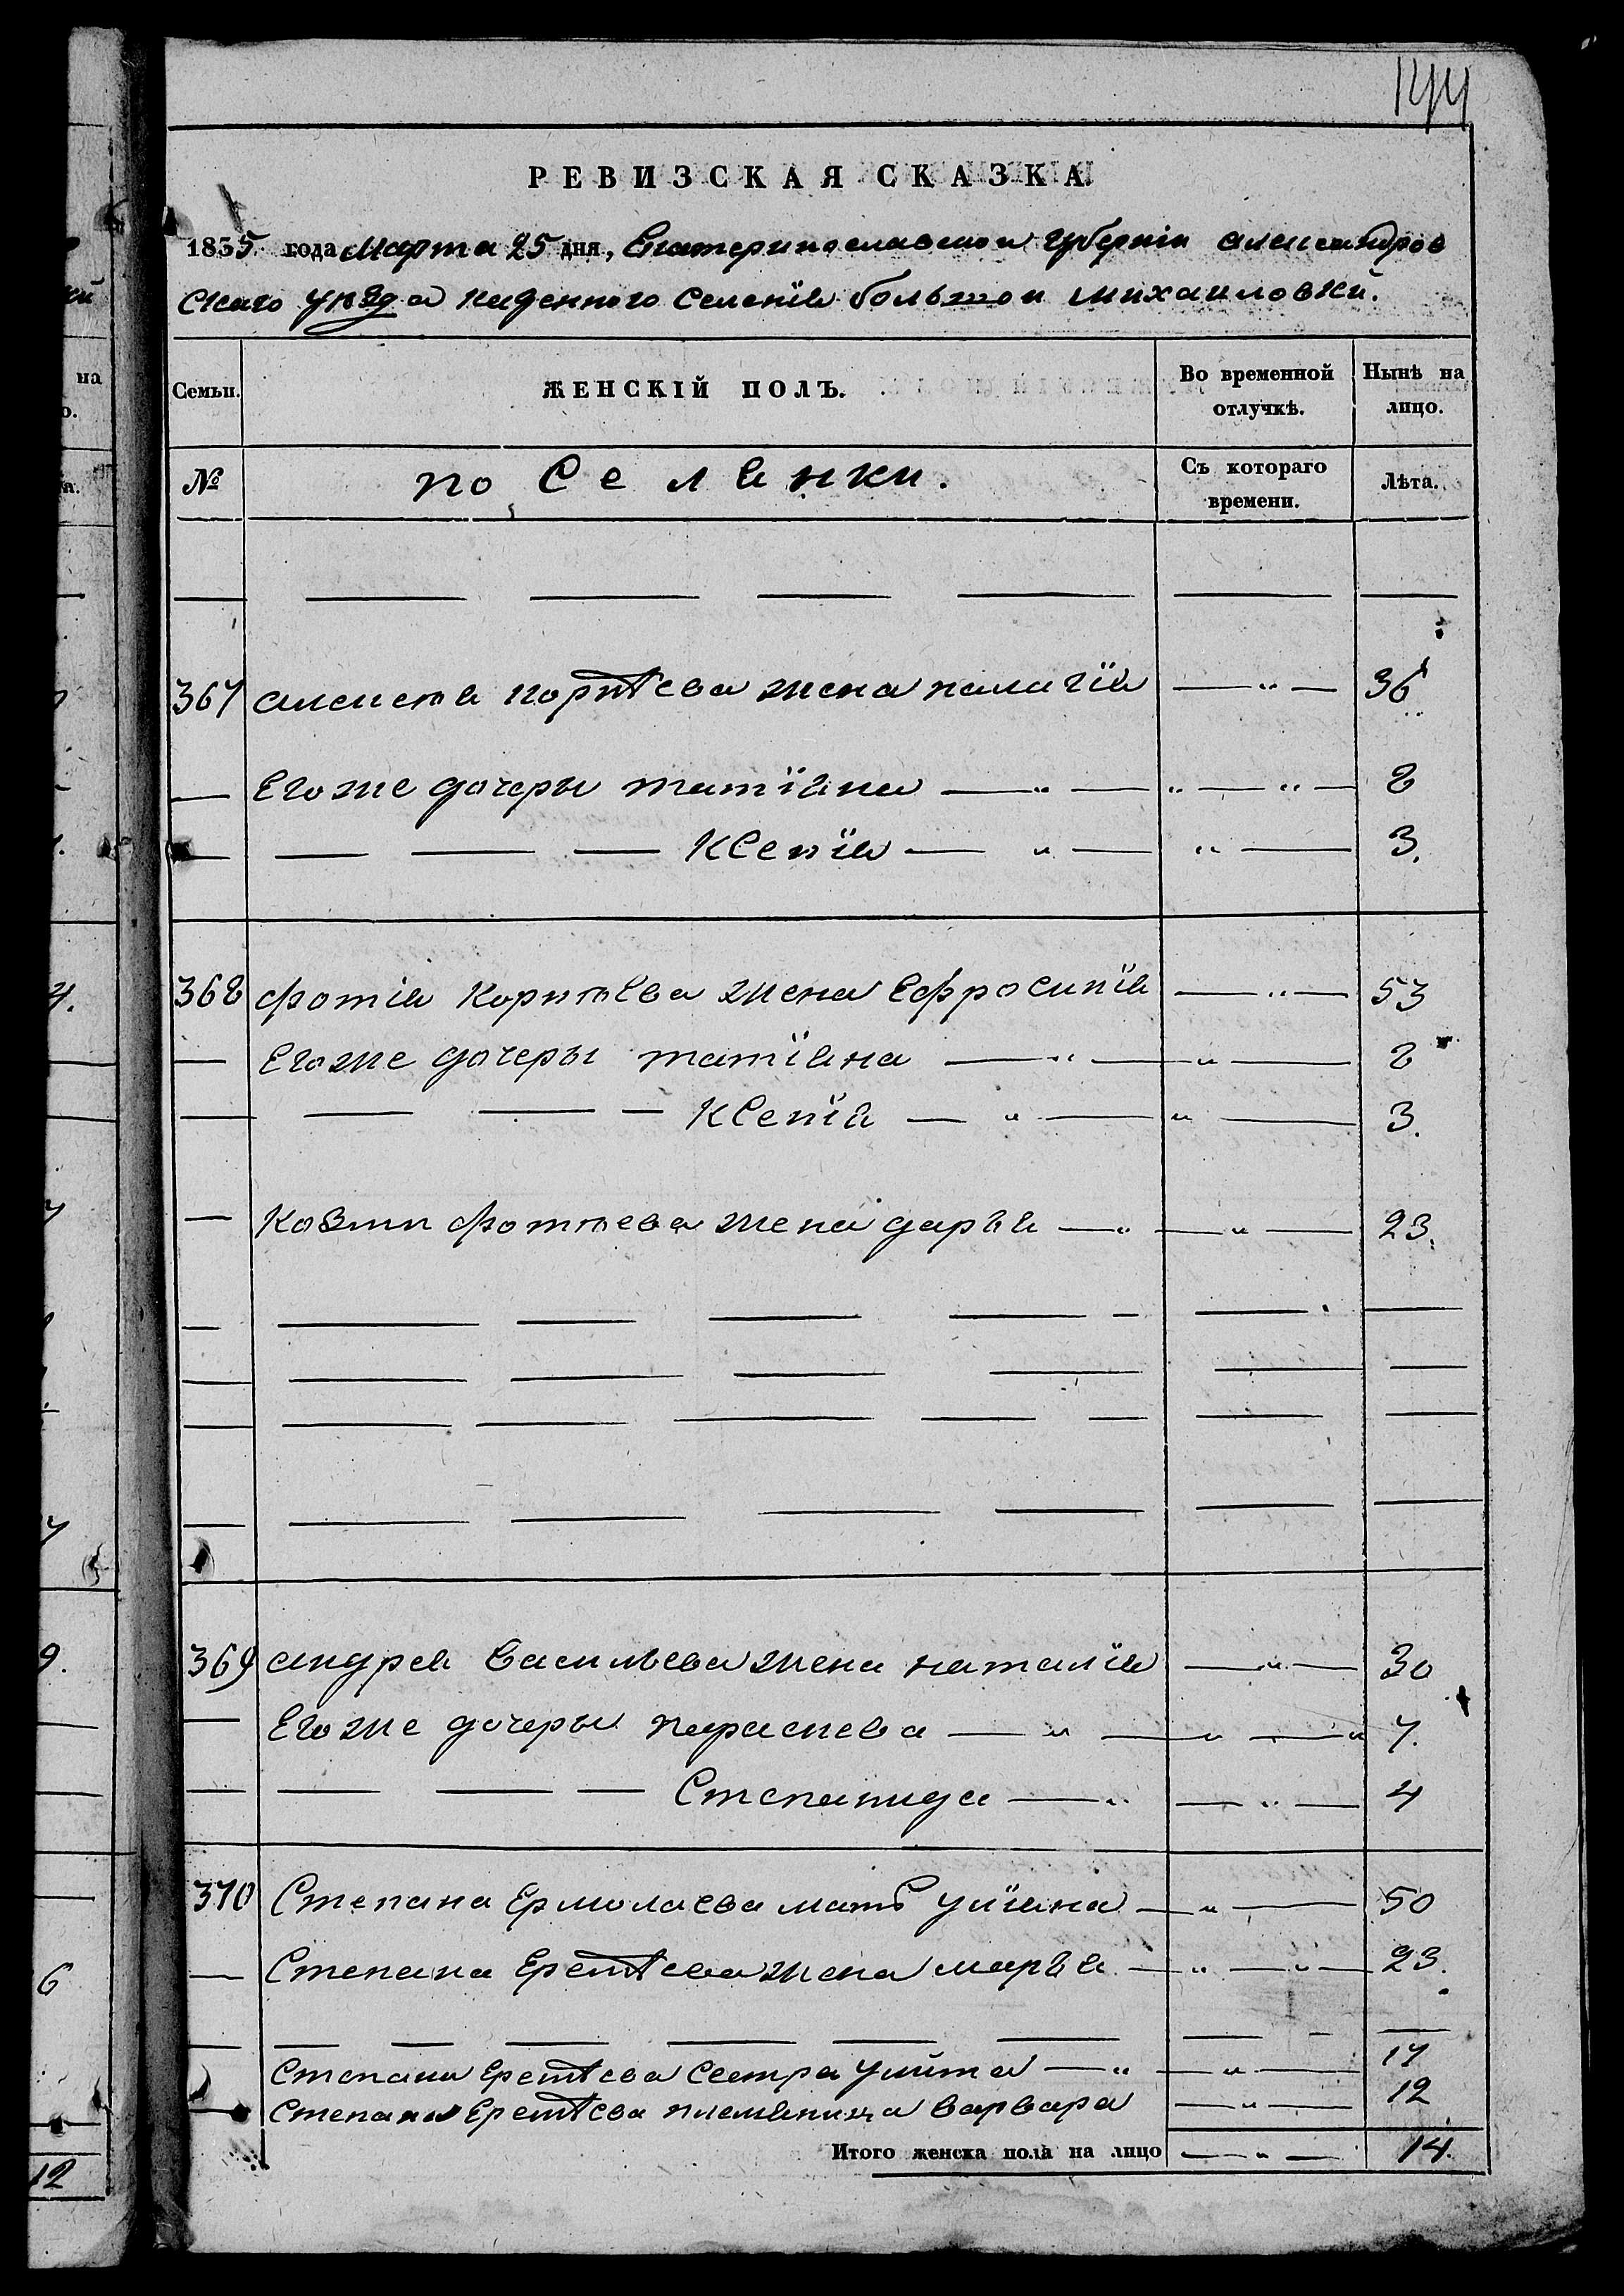 144
РЕВИЗСКАЯ СКАЗКА.
1835 года Марта 25 дня, Екатеринославской Губерніи александров
скаго уезда казенного Селенія большой михаиловки.
Семьи. ЖЕНСКІЙ ПОЛЪ. Во временной отлучкѣ. Нынѣ на лицо.
№ поСелянки. Съ котораго времени. Лѣта.
367 алексея жена палагія 36
Егоже дочеры татіяна 8
Ксенія 3.
368 фотія Корнѣева жена Ефросинія 53
Егоже дочеры татіяна 8
Ксенія 3.
Козми фотѣева жена дарья 23.
369 андрея Васильева жена наталія 30
Егоже дочеры параскева 7.
Степанида 4
370 Степана Ермолаева мать уліяна 50
Степана жена марья 23.
Степана сестра улита 17
Степана племяница варвара 12
Итого женска пола на лицо 14.
9.
6
12